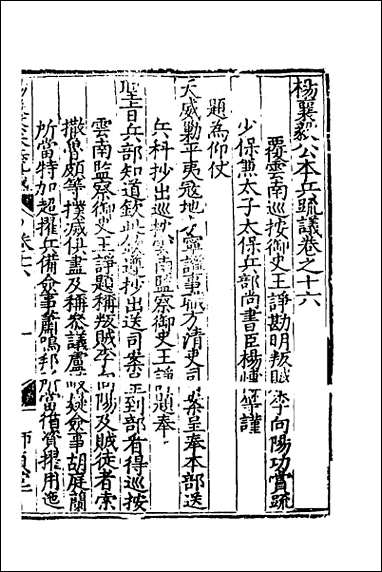 楊襄毅公本兵疏議卷之十六
覆雲南巡按御史王諍勘明叛賊李向陽功賞疏
少保兼太子太保兵部尚書臣楊 等謹
題為仰仗
天威勦平夷寇地方寧謐事職方清吏司案呈奉本部送
兵科抄出巡按雲南監察御史王諍題奉
聖旨兵部知道欽此欽遵抄出送司案呈到部看得巡按
雲南監察御史王諍題稱叛賊李向陽及賊徒者索
撒魯頗等撲滅俱盡及稱參議盧岐嶷僉事胡庭蘭
所當特加超擢兵備僉事蕭鳴邦所當循資擢用迤